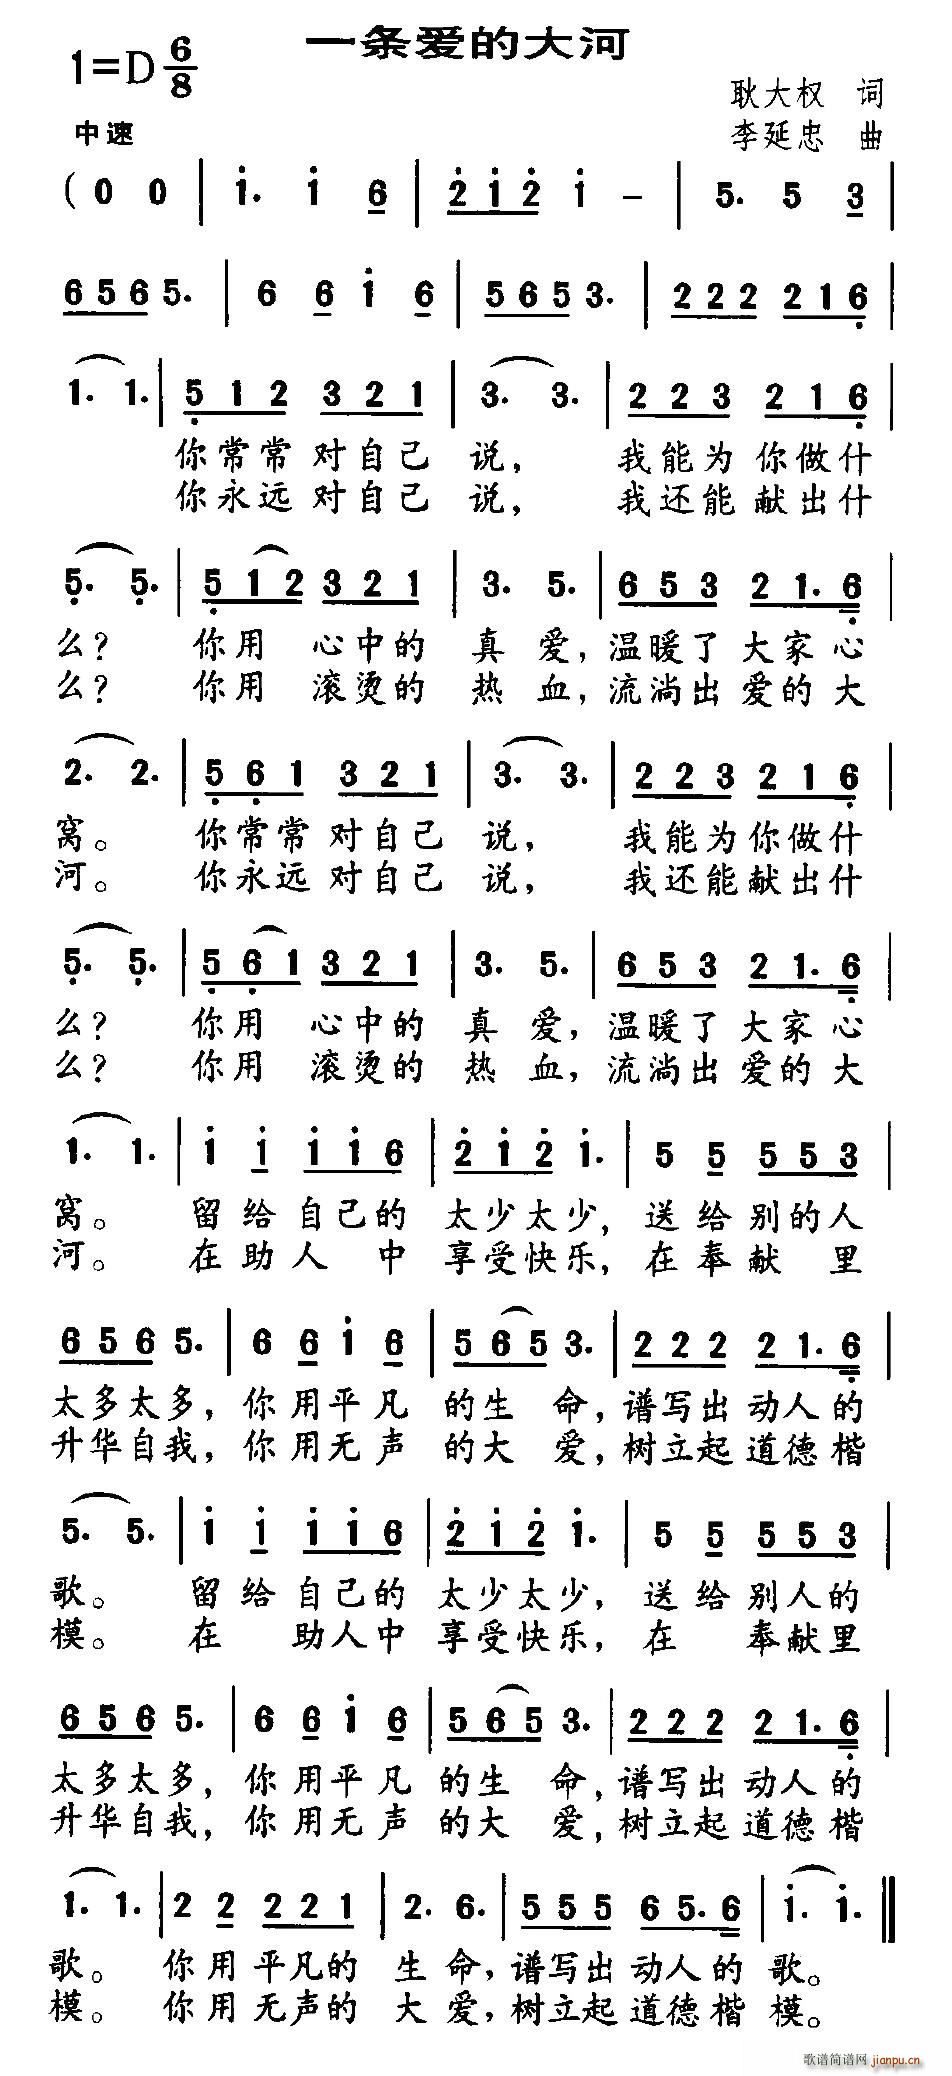 一条爱的大河
1=D 6/8
耿大权 词
中速
李延忠 曲
( 0 0 | i. i 6 | 2 i 2 i – | 5. 5 3 |
6 5 6 5. | 6 6 i 6 | 5 6 5 3. | 2 2 2 2 1 6 |
1. 1. | 5 1 2 3 2 1 | 3. 3. | 2 2 3 2 1 6 |
你常常对自己 说, 我能为你做什
你永远对自己 说, 我还能献出什
5. 5. | 5 1 2 3 2 1 | 3. 5. | 6 5 3 2 1. 6 |
么? 你用 心中的 真 爱,温暖了大家心
么? 你用 滚烫的 热 血,流淌出爱的大
2. 2. | 5 6 1 3 2 1 | 3. 3. | 2 2 3 2 1 6 |
窝。 你常常对自己 说, 我能为你做什
河。 你永远对自己 说, 我还能献出什
5. 5. | 5 6 1 3 2 1 | 3. 5. | 6 5 3 2 1. 6 |
么? 你用 心中的 真 爱,温暖了大家心
么? 你用 滚烫的 热 血,流淌出爱的大
1. 1. | i i i i 6 | 2 i 2 i. | 5 5 5 5 3 |
窝。 留给自己的 太少太少,送给别的人
河。 在助人 中 享受快乐,在奉献 里
6 5 6 5. | 6 6 i 6 | 5 6 5 3. | 2 2 2 2 1. 6 |
太多太多,你用平凡 的生 命,谱写出动人的
升华自我,你用无声 的大 爱,树立起道德楷
5. 5. | i i i i 6 | 2 i 2 i. | 5 5 5 5 3 |
歌。 留给自己的 太少太少,送给别人的
模。 在 助人中 享受快乐,在 奉献里
6 5 6 5. | 6 6 i 6 | 5 6 5 3. | 2 2 2 2 1. 6 |
太多太多,你用平凡 的生 命,谱写出动人的
升华自我,你用无声 的大 爱,树立起道德楷
1. 1. | 2 2 2 2 1 | 2. 6. | 5 5 5 6 5. 6 | i. i. ‖
歌。 你用平凡的 生 命,谱写出动人的 歌。
模。 你用无声的 大 爱,树立起道德楷 模。
歌谱简谱网 jianpu.cn